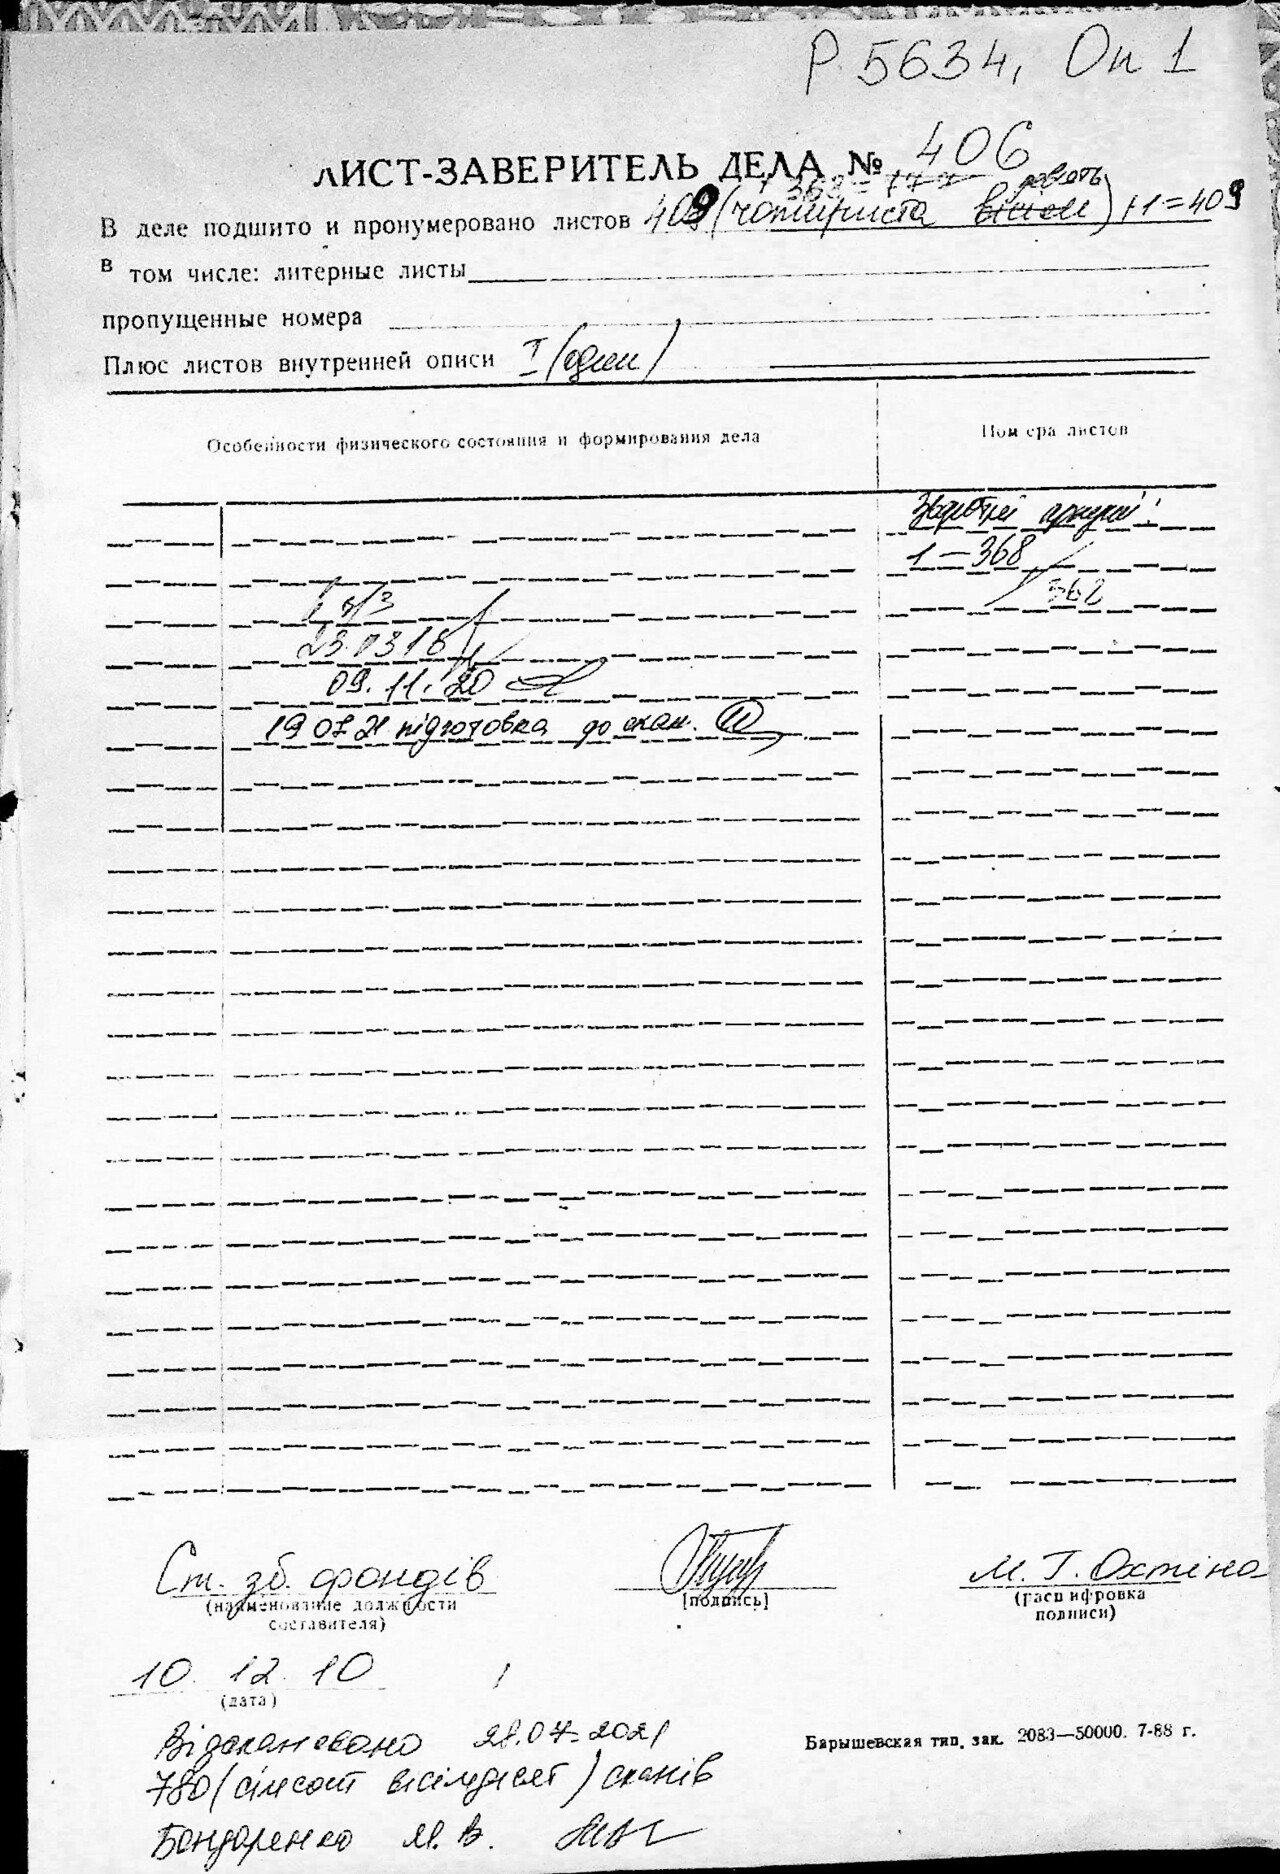 Р. 5634, Оп 1
ЛИСТ-ЗАВЕРИТЕЛЬ ДЕЛА № 406
368 = 777
девять
В деле подшито и пронумеровано листов 409 (чотириста вісім) +1=409
в том числе: литерные листы
пропущенные номера
Плюс листов внутренней описи I (один)
Особенности физического состояния и формирования дела
Номера листов
Зворотні аркуші:
1–368
362
23.03.16
09.11.20
19.07.21 підготовка до скан.
Ст. зб. фондів
М. Г. Охтіна
(наименование должности составителя)
[подпись]
(расшифровка подписи)
10. 12. 10
(дата)
Відскановано 28.07.2021
Барышевская тип. зак. 2083—50000. 7-88 г.
780 (сімсот вісімдесят) сканів
Бондаренко М. В.